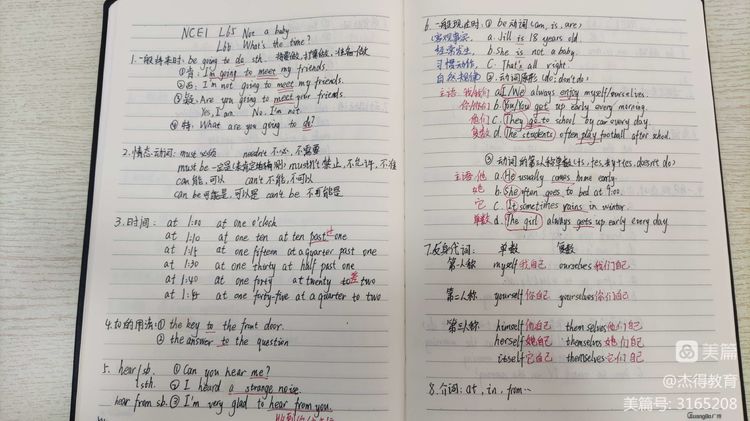 NCE1 L65 Not a baby
L66 What's the time?
1.一般将来时: be going to do sth. 将要做,打算做,准备做
①肯: I'm going to meet my friends.
②否: I'm not going to meet my friends.
③疑: Are you going to meet your friends.
Yes, I am. No, I'm not
④特: What are you going to do?
2.情态动词: must 必须 needn't 不必,不需要
must be 一定是(表肯定推测) mustn't 禁止,不允许,不准
can 能,可以 can't 不能,不可以
can be 可能是,可以是 can't be 不可能是
3.时间: at 1:00 at one o'clock
at 1:10 at one ten at ten past one
at 1:15 at one fifteen at a quarter past one
at 1:30 at one thirty at half past one
at 1:40 at one forty at twenty to two
at 1:45 at one forty-five at a quarter to two
4.to的用法:① the key to the front door.
② the answer to the question
5. hear sb. ① Can you hear me?
sth. ② I heard a strange noise.
hear from sb. ③ I'm very glad to hear from you.
6.一般现在时: ① be动词(am, is, are)
客观事实 a. Jill is 18 years old.
经常发生 b. She is not a baby.
习惯动作 C. That's all right.
自然规律 ②动词原形(do; don't do)
主语:我/我们 a. I/We always enjoy myself/ourselves.
你/你们 b. You/You get up early every morning.
他们 C. They go to school by car every day.
复数 d. The students often play football after school.
③动词第三人称单数(+s, +es, 变y+ies, doesn't do)
主语:他 a. He usually comes home early.
她 b. She often goes to bed at 9:00.
它 C. It sometimes rains in winter.
单数 d. The girl always gets up early every day.
7.反身代词: 单数 复数
第一人称 myself 我自己 ourselves 我们自己
第二人称 yourself 你自己 yourselves 你们自己
第三人称 himself 他自己 themselves 他们自己
herself 她自己 themselves 她们自己
itself 它自己 themselves 它们自己
8.介词: at, in, from…
美篇
@杰得教育
美篇号: 3165208
GuangBo广博